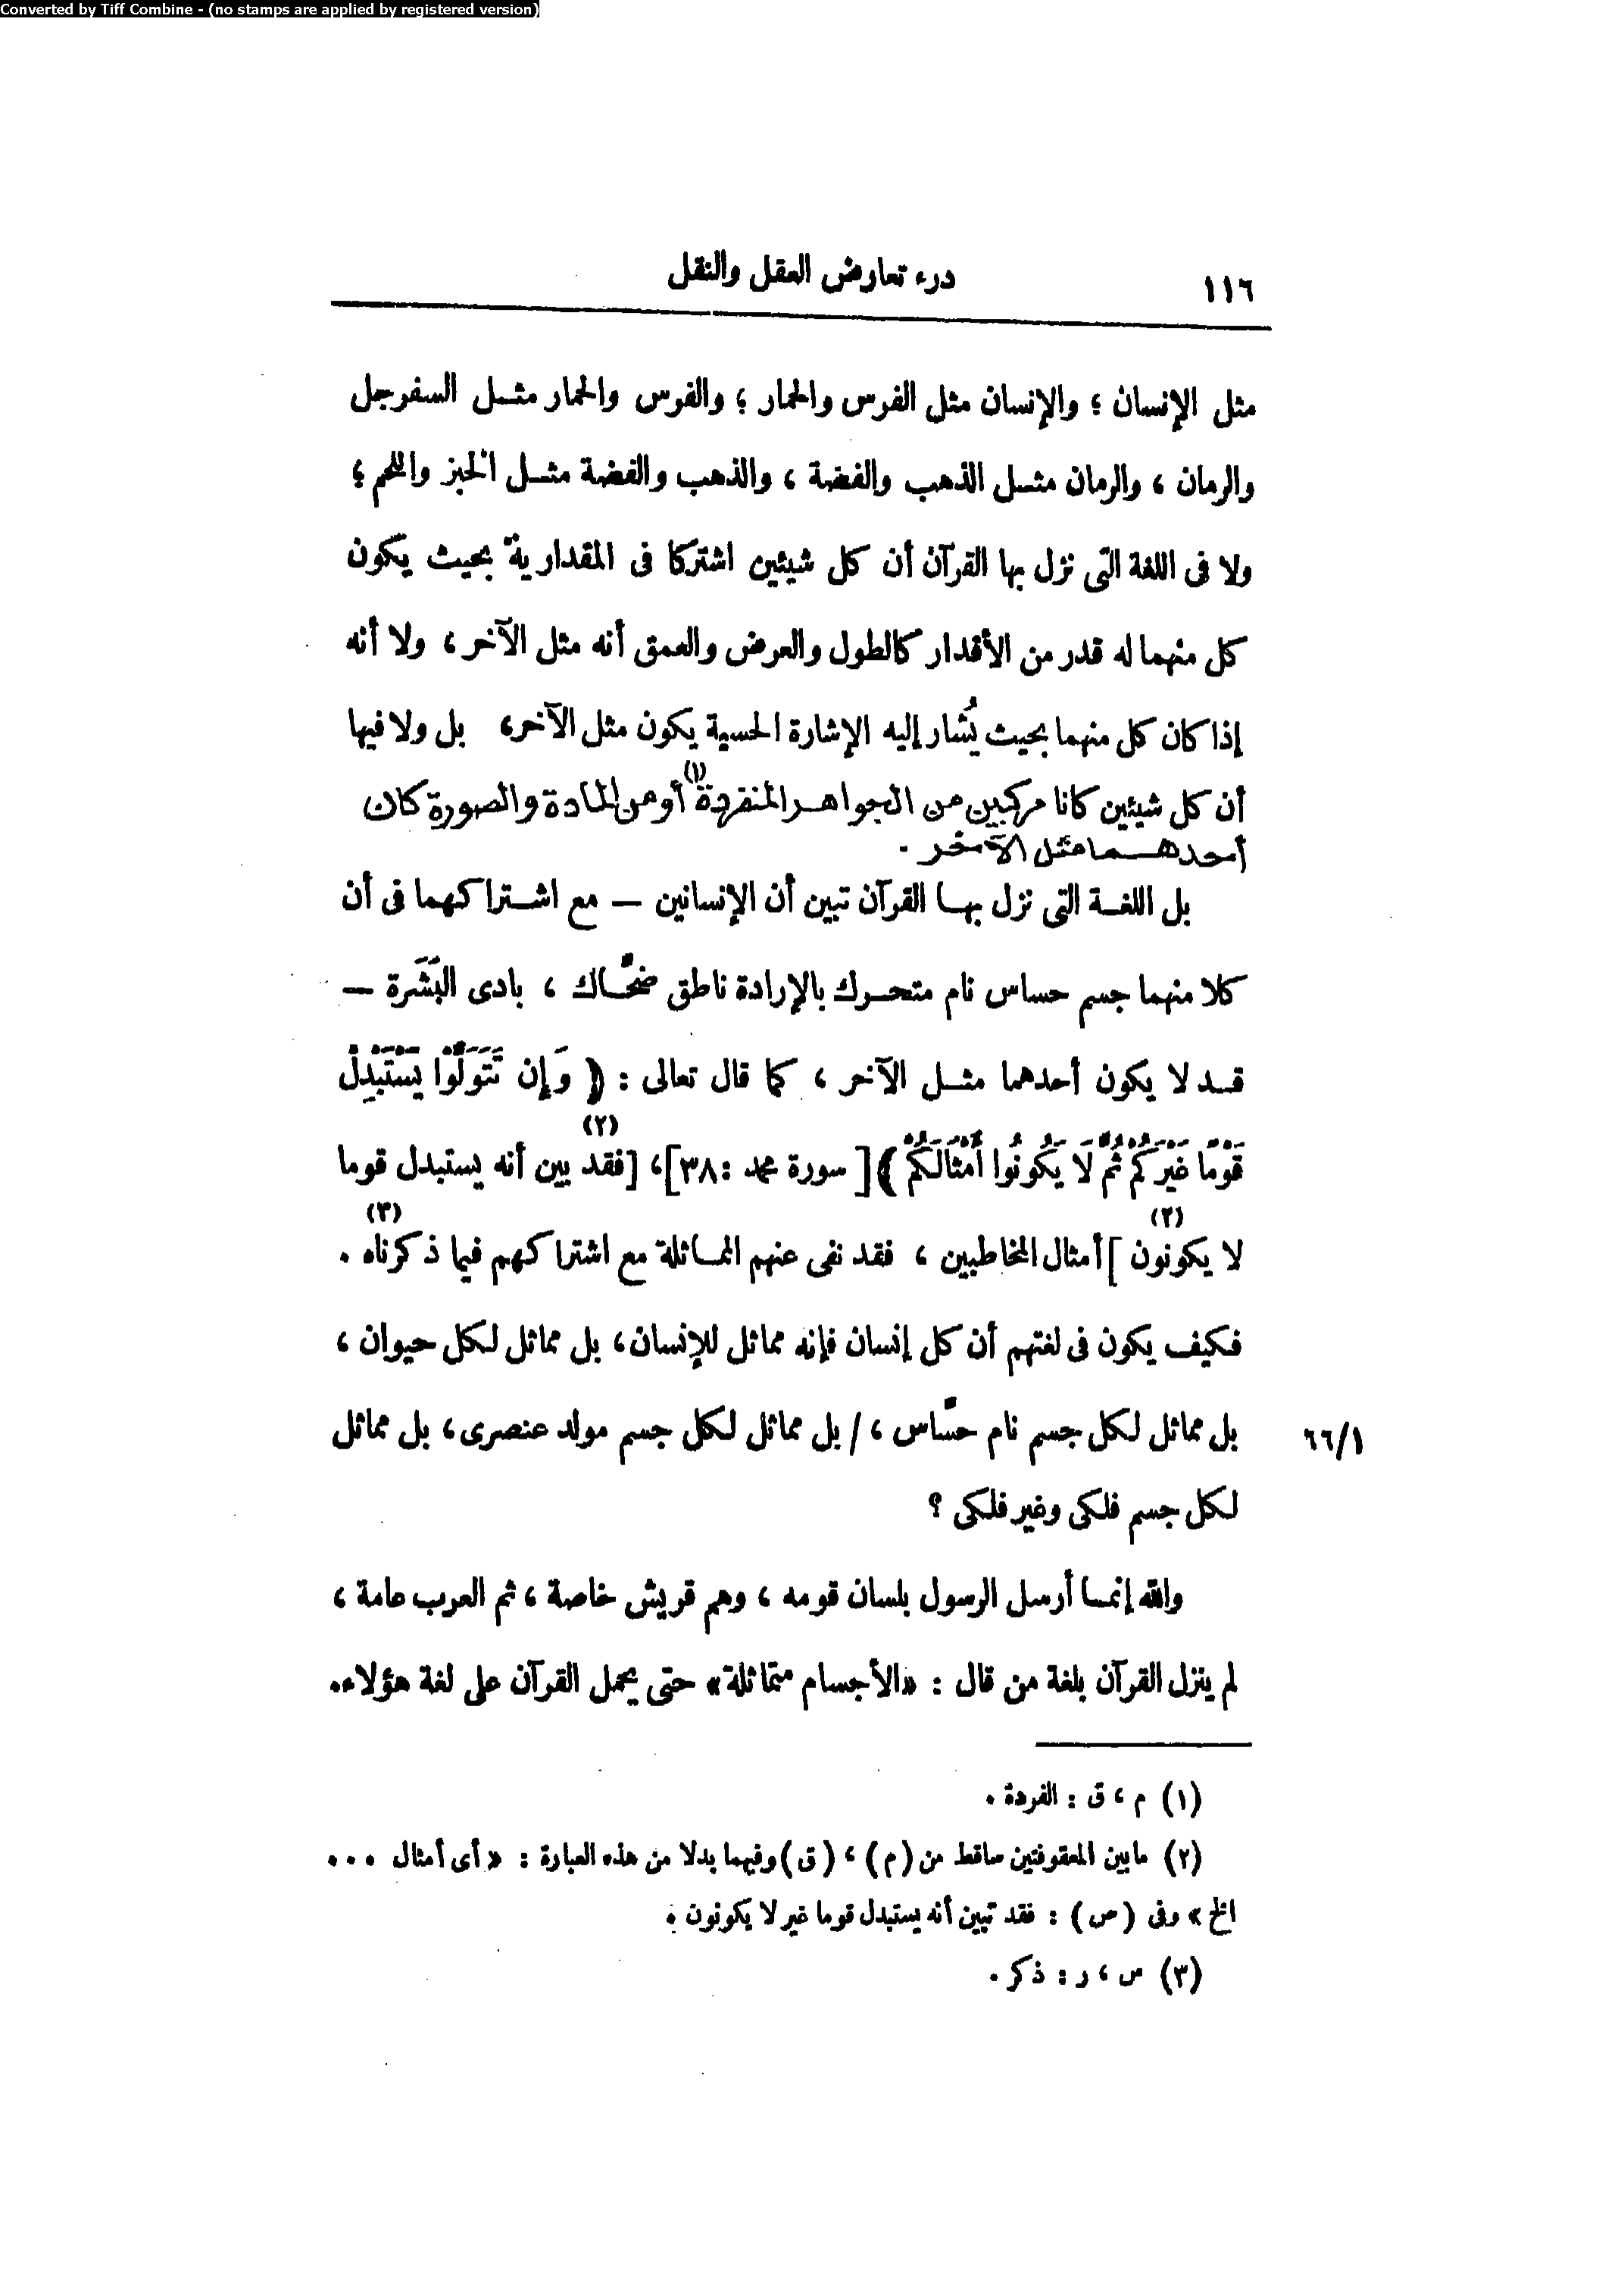 Converted by Tiff Combine - (no stamps are applied by registered version)
١١٦
درء تعارض العقل والنقل
مثل الإنسان ؛ والإنسان مثل الفرس والحمار ؛ والفرس والحمار مثل السفرجل
والرمان ، والرمان مثل الذهب والفضة ، والذهب والفضة مثل الخبز واللحم ؛
ولا فى اللغة التى نزل بها القرآن أن كل شيئين اشتركا فى المقدارية بحيث يكون
كل منهما له قدر من الأقدار كالطول والعرض والعمق أنه مثل الآخر ، ولا أنه
إذا كان كل منهما بحيث يُشار إليه الإشارة الحسية يكون مثل الآخر ، بل ولا فيها
أن كل شيئين كانا مركبين من الجواهر المنفردة (١) أو من المادة والصورة كان
أحدهما مثل الآخر .
بل اللغة التى نزل بها القرآن تبين أن الإنسانين — مع اشتراكهما فى أن
كلا منهما جسم حساس نام متحرك بالإرادة ناطق ضحَّاك ، بادى البَشَرة —
قد لا يكون أحدهما مثل الآخر ، كما قال تعالى : ﴿ وَإِن تَتَوَلَّوْا يَسْتَبْدِلْ
قَوْمًا غَيْرَكُمْ ثُمَّ لَا يَكُونُوا أَمْثَالَكُمْ ﴾ [ سورة محمد : ٣٨] ، [فقد (٢) بين أنه يستبدل قوما
لا يكونون ] (٢) أمثال المخاطبين ، فقد نفى عنهم المماثلة مع اشتراكهم فيما ذكرناه (٣) .
فكيف يكون فى لغتهم أن كل إنسان فإنه مماثل للإنسان ، بل مماثل لكل حيوان ،
بل مماثل لكل جسم نام حسَّاس ، / بل مماثل لكل جسم مولد عنصرى ، بل مماثل
١/٦٦
لكل جسم فلكى وغير فلكى ؟
والله إنما أرسل الرسول بلسان قومه ، وهم قريش خاصة ، ثم العرب عامة ،
لم ينزل القرآن بلغة من قال : «الأجسام متماثلة» حتى يحمل القرآن على لغة هؤلاء .
(١) م ، ق : الفردة .
(٢) ما بين المعقوفتين ساقط من (م) ، (ق) وفيهما بدلا من هذه العبارة : « أى أمثال ...
الخ » وفى (ص) : فقد تبين أنه يستبدل قوما غير لا يكونون .
(٣) س ، ر : ذكر .